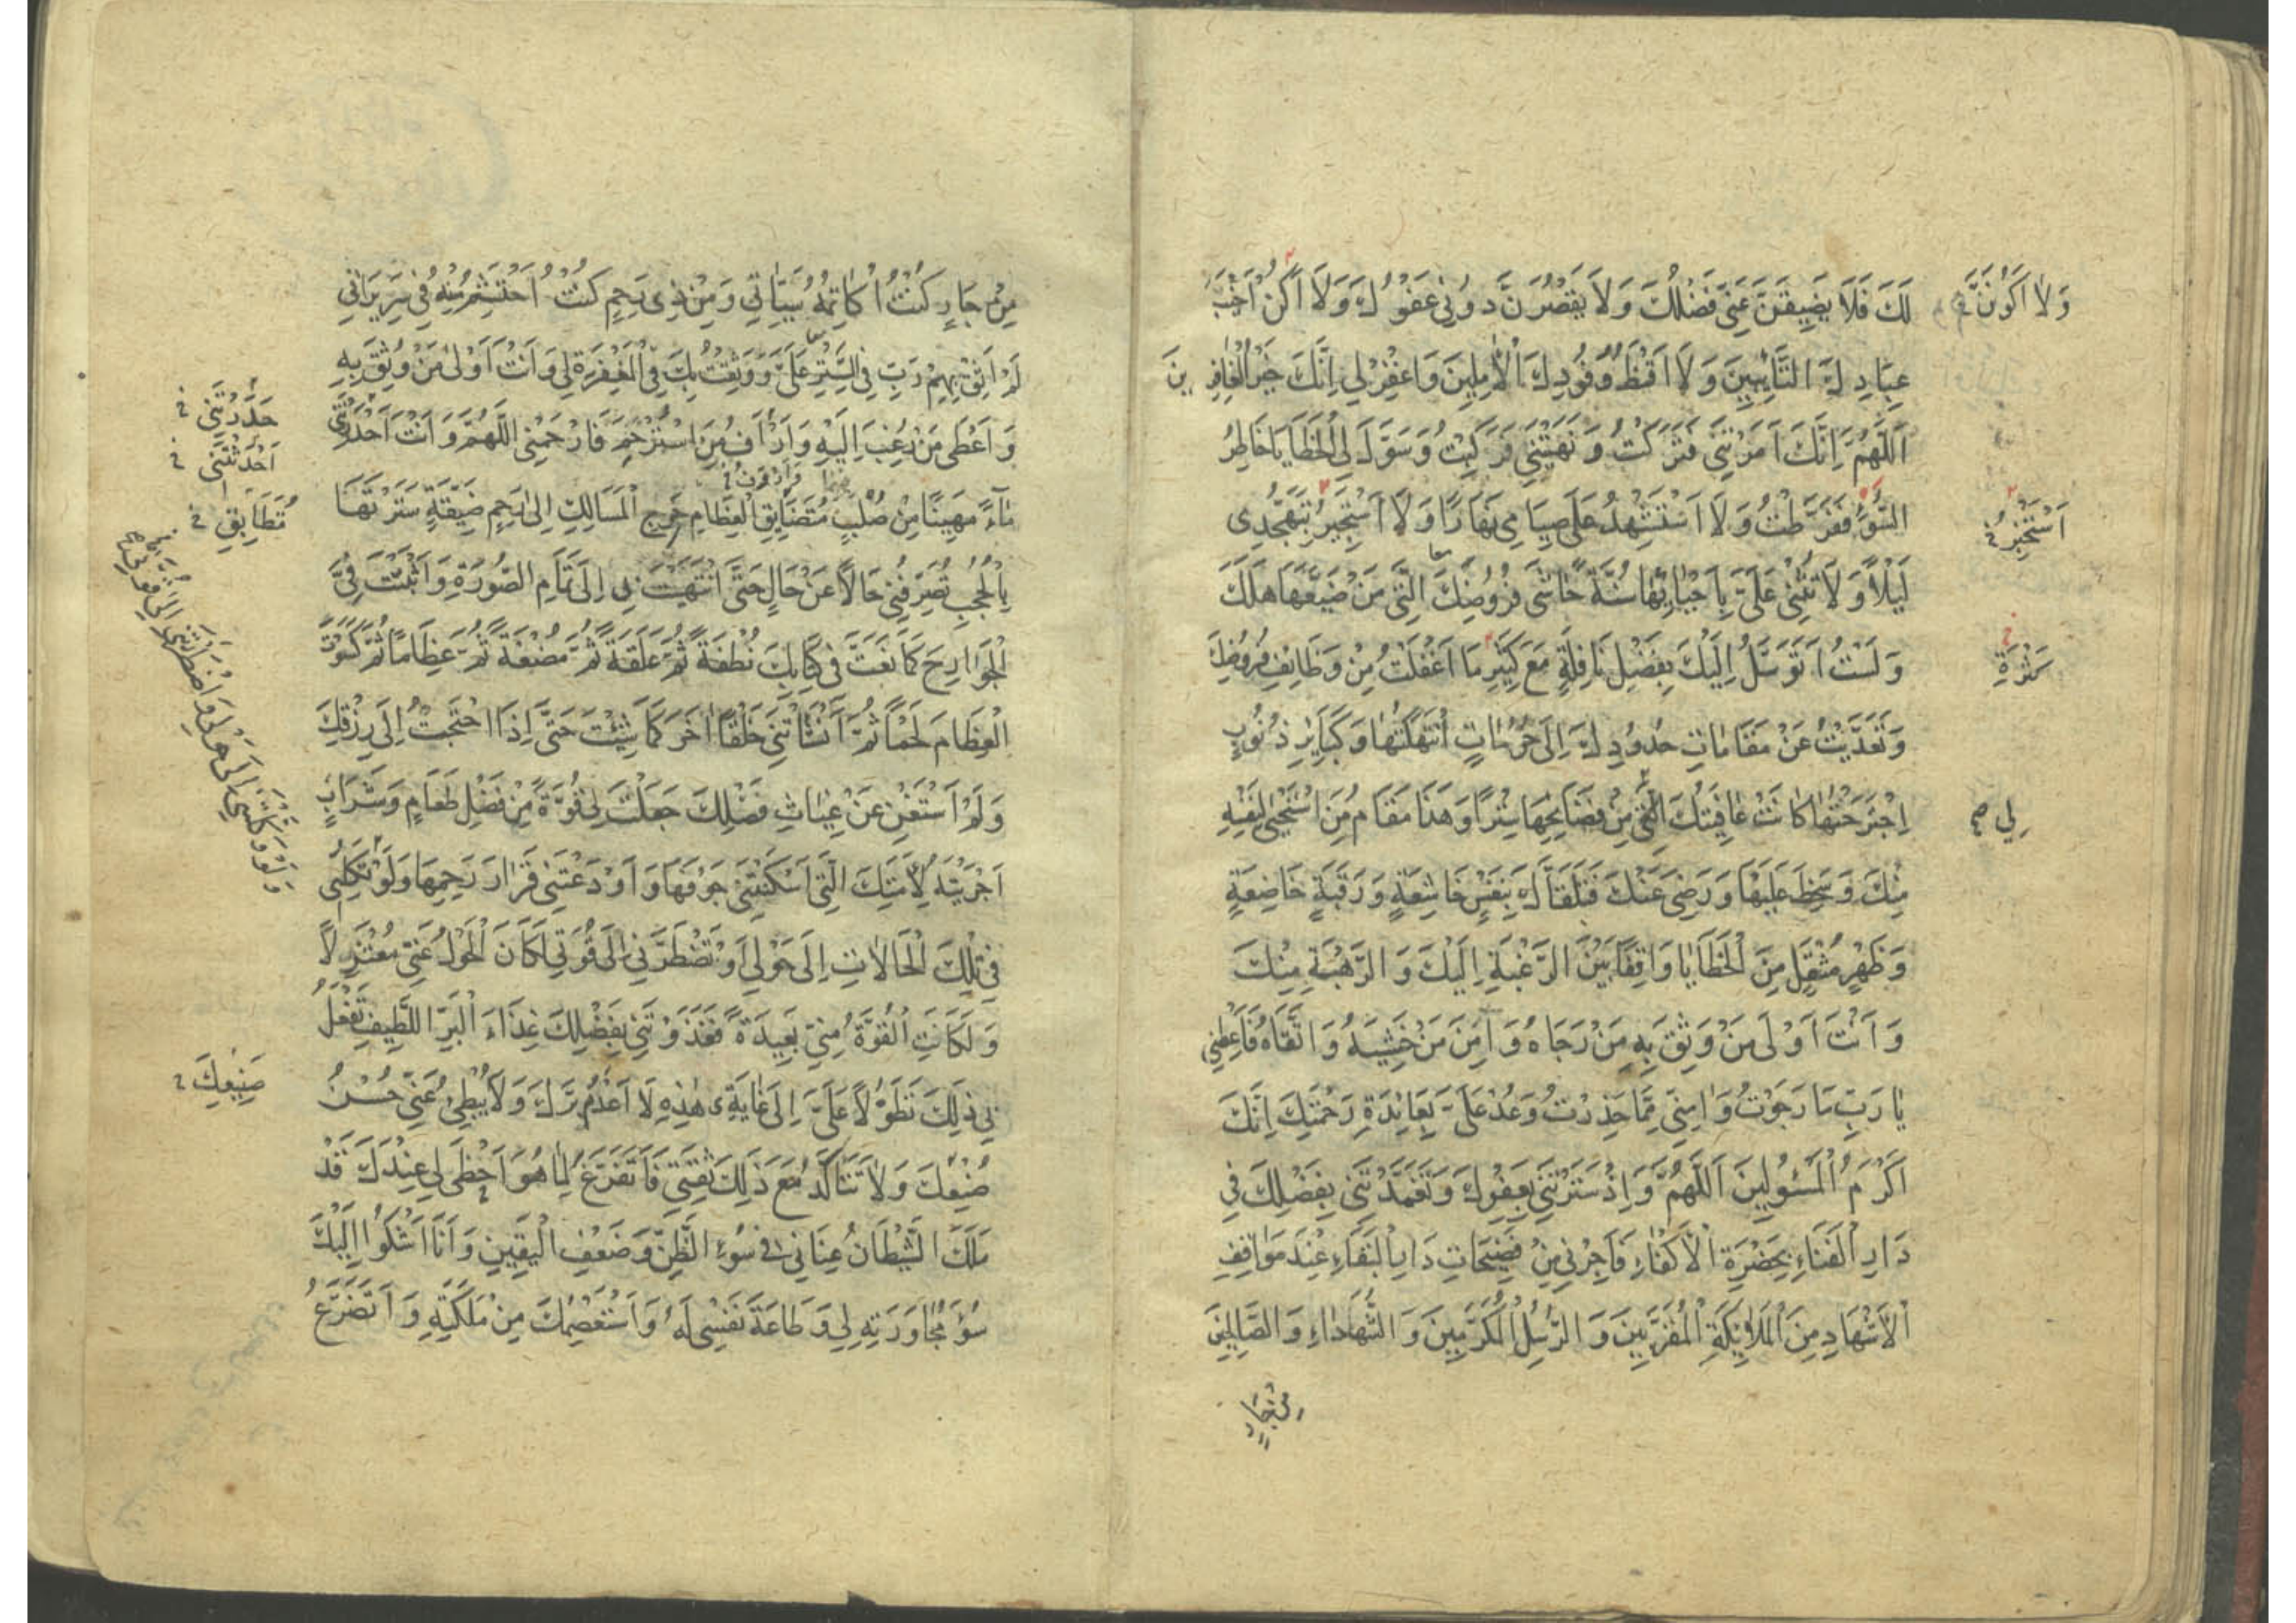 لَكَ فَلَا يَضِيقَنَّ عَنِّي فَضْلُكَ وَلَا يَقْصُرَنَّ دُونِي عَفْوُكَ وَلَا أَكُنْ أَخْيَبَ
وَلَا أَكُونَنَّ
عِبَادِكَ التَّائِبِينَ وَلَا أَقْنَطَ وُفُودِكَ الْآمِلِينَ وَاغْفِرْ لِي إِنَّكَ خَيْرُ الْغَافِرِينَ
اَللَّهُمَّ إِنَّكَ أَمَرْتَنِي فَتَرَكْتُ وَنَهَيْتَنِي فَرَكِبْتُ وَسَوَّلَ لِيَ الْخَطَايَا خَاطِرُ
السُّوءِ فَفَرَّطْتُ وَلَا أَسْتَشْهِدُ عَلَى صِيَامِي نَهَارًا وَلَا أَسْتَجِيرُ بِتَهَجُّدِي
أَسْتَخْبِرُ
لَيْلًا وَلَا تُثْنِي عَلَيَّ بِإِحْيَائِهَا سُنَّةٌ حَاشَى فُرُوضِكَ الَّتِي مَنْ ضَيَّعَهَا هَلَكَ
وَلَسْتُ أَتَوَسَّلُ إِلَيْكَ بِفَضْلِ نَافِلَةٍ مَعَ كَثِيرِ مَا أَغْفَلْتُ مِنْ وَظَائِفِ فُرُوضِكَ
كَثْرَةِ
وَتَعَدَّيْتُ عَنْ مَقَامَاتِ حُدُودِكَ إِلَى حُرُمَاتٍ انْتَهَكْتُهَا وَكَبَائِرِ ذُنُوبٍ
اِجْتَرَحْتُهَا كَانَتْ عَافِيَتُكَ الَّتِي مِنْ فَضَائِحِهَا سِتْرًا وَهَذَا مَقَامُ مَنِ اسْتَحْيَى لِنَفْسِهِ
لِي
مِنْكَ وَسَخِطَ عَلَيْهَا وَرَضِيَ عَنْكَ فَتَلَقَّاكَ بِنَفْسٍ خَاشِعَةٍ وَرَقَبَةٍ خَاضِعَةٍ
وَظَهْرٍ مُثْقَلٍ مِنَ الْخَطَايَا وَاقِفًا بَيْنَ الرَّغْبَةِ إِلَيْكَ وَالرَّهْبَةِ مِنْكَ
وَأَنْتَ أَوْلَى مَنْ وَثِقَ بِهِ مَنْ رَجَاهُ وَآمَنَ مَنْ خَشِيَهُ وَاتَّقَاهُ فَأَعْطِنِي
يَا رَبِّ مَا رَجَوْتُ وَآمِنِّي مِمَّا حَذِرْتُ وَعُدْ عَلَيَّ بِعَائِدَةِ رَحْمَتِكَ إِنَّكَ
أَكْرَمُ الْمَسْئُولِينَ اَللَّهُمَّ وَإِذْ سَتَرْتَنِي بِعَفْوِكَ وَتَغَمَّدْتَنِي بِفَضْلِكَ فِي
دَارِ الْفَنَاءِ بِحَضْرَةِ الْأَكْفَاءِ فَأَجِرْنِي مِنْ فَضِيحَاتِ دَارِ الْبَقَاءِ عِنْدَ مَوَاقِفِ
الْأَشْهَادِ مِنَ الْمَلَائِكَةِ الْمُقَرَّبِينَ وَالرُّسُلِ الْمُكَرَّمِينَ وَالشُّهَدَاءِ وَالصَّالِحِينَ
مِنْ جَارٍ
مِنْ جَارٍ كُنْتُ أُكَاتِمُهُ سَيِّئَاتِي وَمِنْ ذِي رَحِمٍ كُنْتُ أَحْتَشِمُ مِنْهُ فِي سَرِيرَاتِي
لَمْ أَثِقْ بِهِمْ رَبِّ فِي السِّتْرِ عَلَيَّ وَوَثِقْتُ بِكَ فِي الْمَغْفِرَةِ لِي وَأَنْتَ أَوْلَى مَنْ وُثِقَ بِهِ
وَأَعْطَى مَنْ رُغِبَ إِلَيْهِ وَأَرْأَفُ مَنِ اسْتُرْحِمَ فَارْحَمْنِي اَللَّهُمَّ وَأَنْتَ أَحْدَرْتَنِي
حَدَرْتَنِي
أَحْدَثْتَنِي
مَاءً مَهِينًا مِنْ صُلْبٍ مُتَضَايِقِ الْعِظَامِ حَرِجِ الْمَسَالِكِ إِلَى رَحِمٍ ضَيِّقَةٍ سَتَرْتَهَا
مُتَطَابِقِ
بِالْحُجُبِ تُصَرِّفُنِي حَالًا عَنْ حَالٍ حَتَّى انْتَهَيْتَ بِي إِلَى تَمَامِ الصُّورَةِ وَأَثْبَتَّ فِيَّ
الْجَوَارِحَ كَمَا نَعَتَّ فِي كِتَابِكَ نُطْفَةً ثُمَّ عَلَقَةً ثُمَّ مُضْغَةً ثُمَّ عِظَامًا ثُمَّ كَسَوْتَ
الْعِظَامَ لَحْمًا ثُمَّ أَنْشَأْتَنِي خَلْقًا آخَرَ كَمَا شِئْتَ حَتَّى إِذَا احْتَجْتُ إِلَى رِزْقِكَ
وَلَمْ أَسْتَغْنِ عَنْ غِيَاثِ فَضْلِكَ جَعَلْتَ لِي قُوَّةً مِنْ فَضْلِ طَعَامٍ وَشَرَابٍ
أَجْرَيْتَهُ لِأَمَتِكَ الَّتِي أَسْكَنْتَنِي جَوْفَهَا وَأَوْدَعْتَنِي قَرَارَ رَحِمِهَا وَلَوْ تَكِلُنِي
فِي تِلْكَ الْحَالَاتِ إِلَى حَوْلِي أَوْ تَضْطَرُّنِي إِلَى قُوَّتِي لَكَانَ الْحَوْلُ عَنِّي مُعْتَزِلًا
وَلَكَانَتِ الْقُوَّةُ مِنِّي بَعِيدَةً فَغَذَوْتَنِي بِفَضْلِكَ غِذَاءَ الْبَرِّ اللَّطِيفِ تَفْعَلُ
بِي ذَلِكَ تَطَوُّلًا عَلَيَّ إِلَى غَايَتِي هَذِهِ لَا أَعْدَمُ بِرَّكَ وَلَا يُبْطِئُ عَنِّي حُسْنُ
صَنِيعِكَ
صُنْعِكَ وَلَا تَتَأَكَّدُ مَعَ ذَلِكَ ثِقَتِي فَأَتَفَرَّغَ لِمَا هُوَ أَحْظَى لِي عِنْدَكَ قَدْ
مَلَكَ الشَّيْطَانُ عِنَانِي فِي سُوءِ الظَّنِّ وَضَعْفِ الْيَقِينِ وَأَنَا أَشْكُو إِلَيْكَ
سُوءَ مُجَاوَرَتِهِ لِي وَطَاعَةَ نَفْسِي لَهُ وَأَسْتَعْصِمُكَ مِنْ مَلَكَتِهِ وَأَتَضَرَّعُ